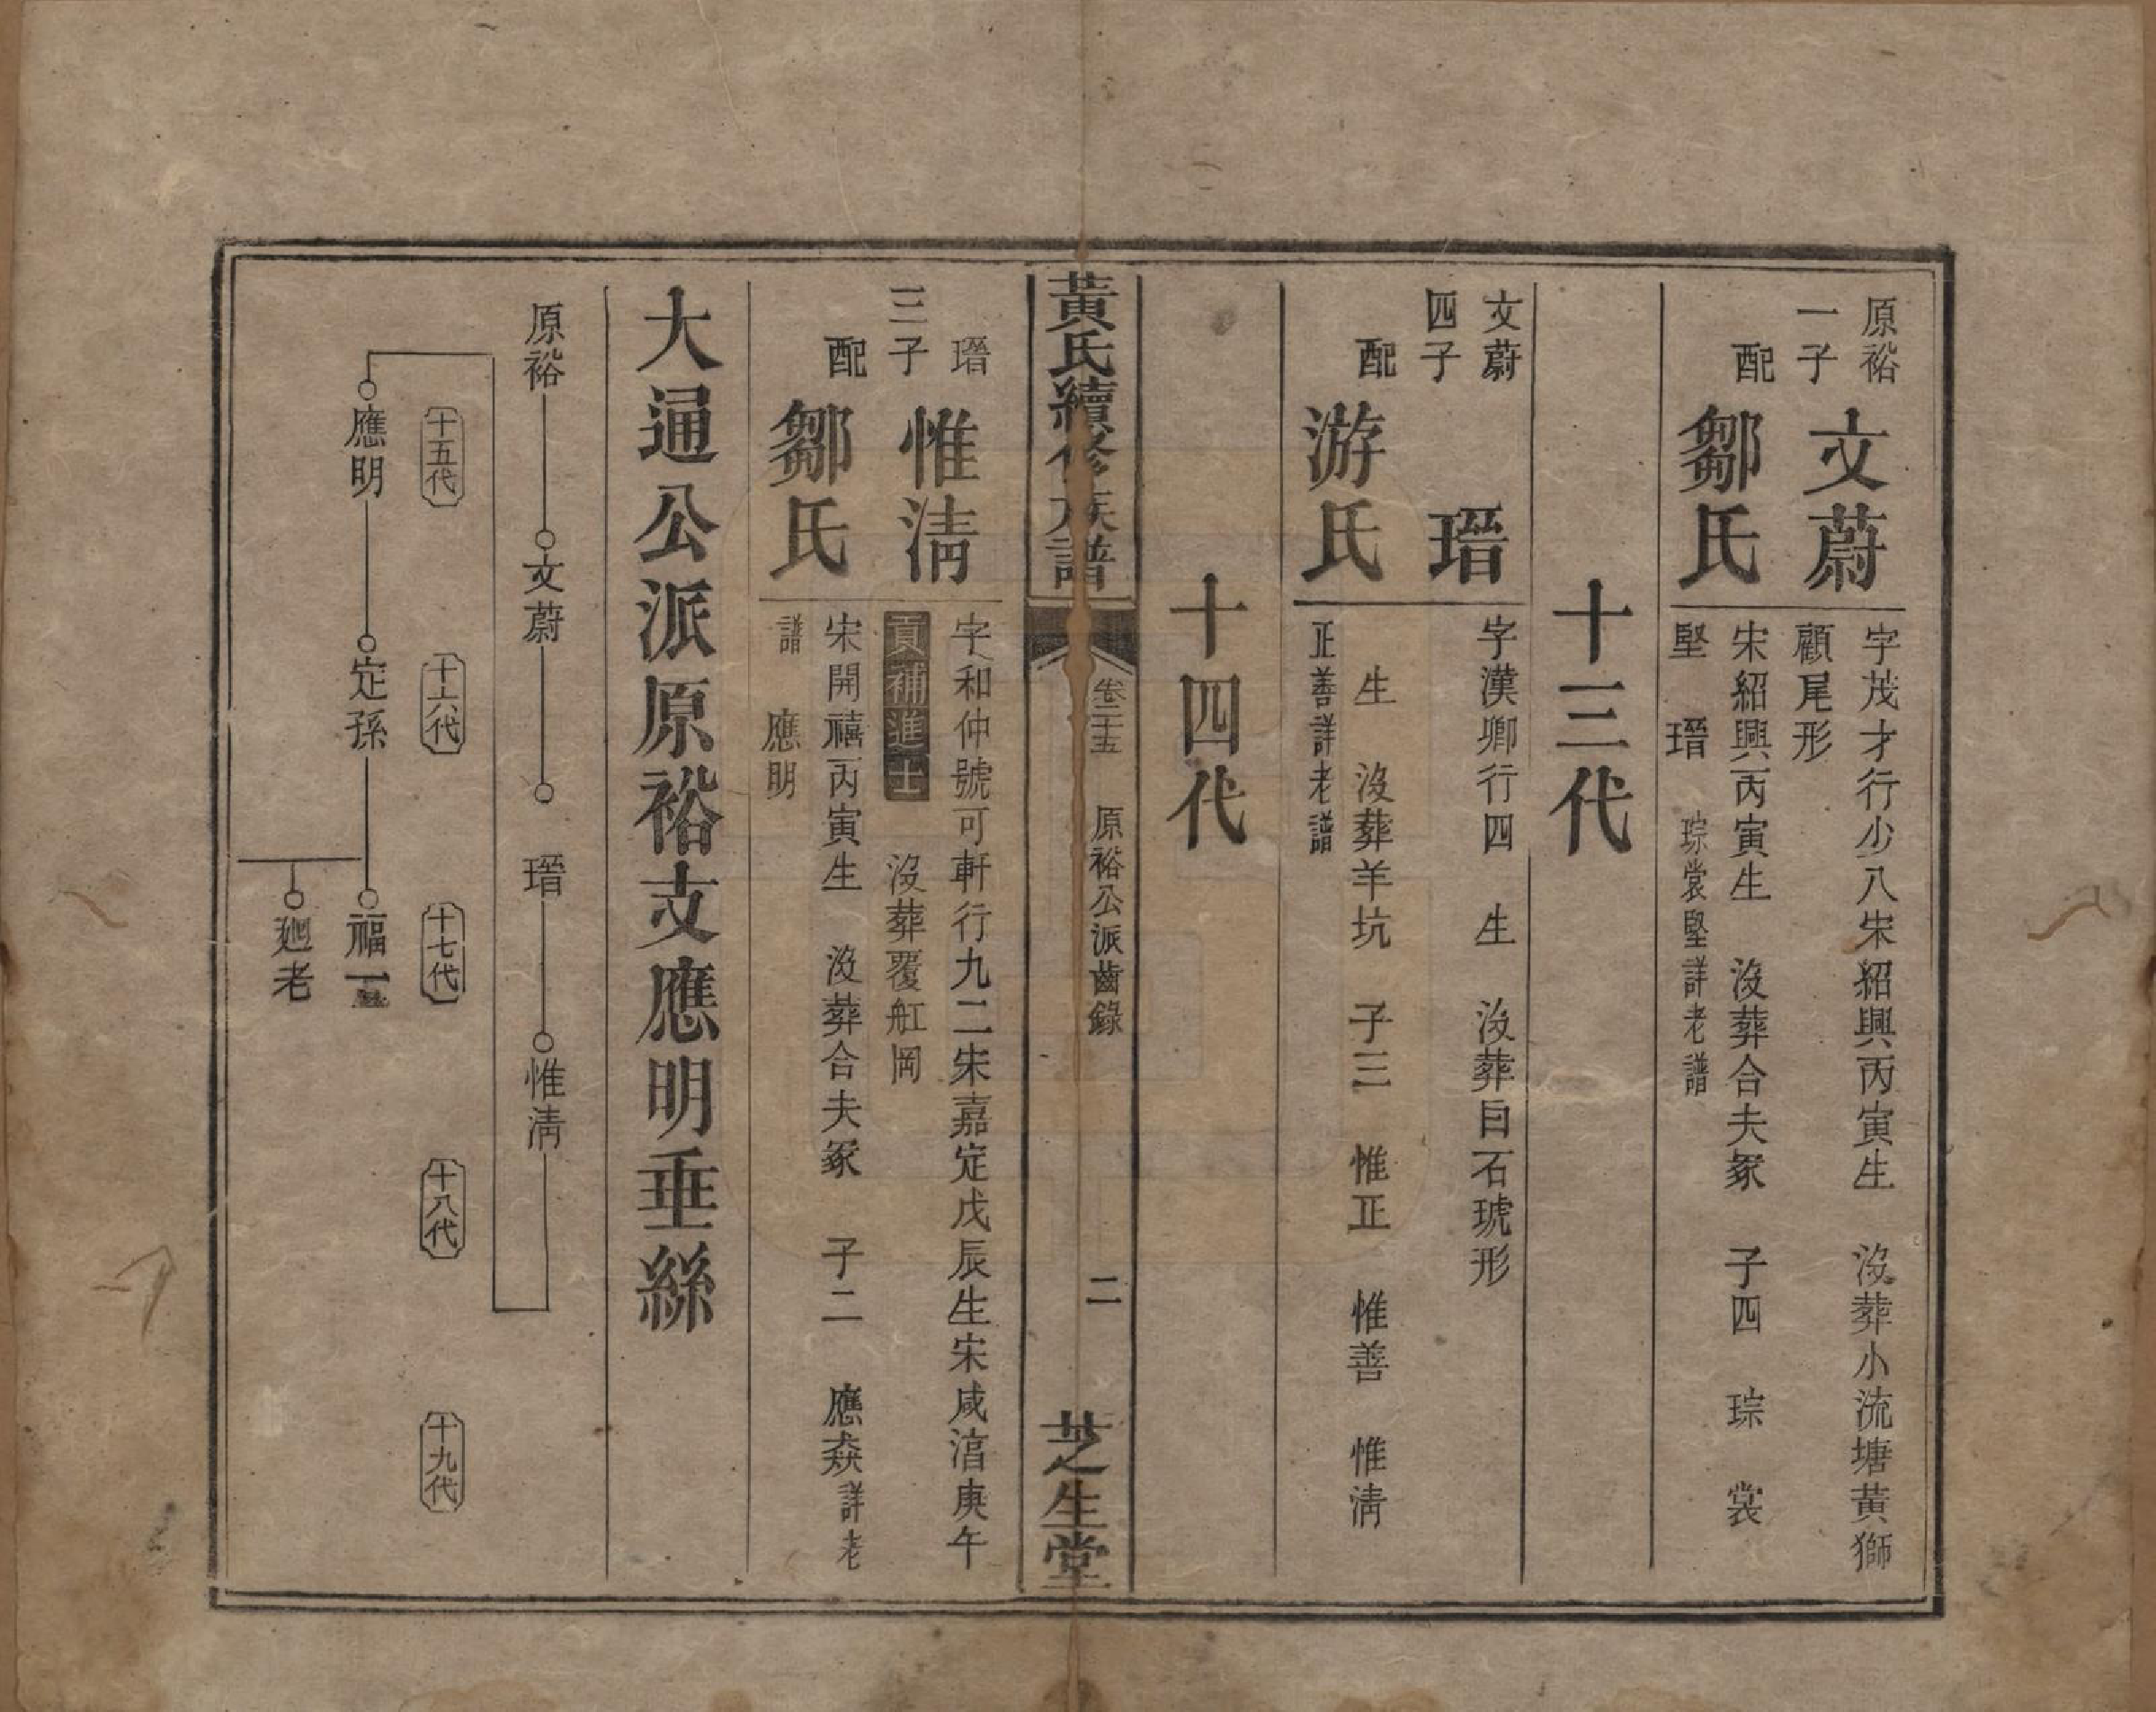 原裕
一子
文蔚
字茂才行少八宋紹興丙寅生　沒葬小流塘黃獅
顧尾形
配
鄒氏
宋紹興丙寅生　沒葬合夫冢　子四　琮　裳
堅　瑨　琮裳堅詳老譜
十三代
文蔚
四子
瑨
字漢卿行四　生　沒葬白石琥形
配
游氏
生　沒葬羊坑　子三　惟正　惟善　惟淸
正善詳老譜
十四代
黃氏續修族譜
卷二十五
原裕公派齒錄
二
芝生堂
瑨
三子
惟淸
字和仲號可軒行九二宋嘉定戊辰生宋咸淳庚午
貢補進士　沒葬覆舡岡
配
鄒氏
宋開禧丙寅生　沒葬合夫冢　子二　應焱詳老
譜　應明
大通公派原裕支應明垂絲
原裕
文蔚
瑨
惟淸
十五代
十六代
十七代
十八代
十九代
應明
定孫
福一
廻老